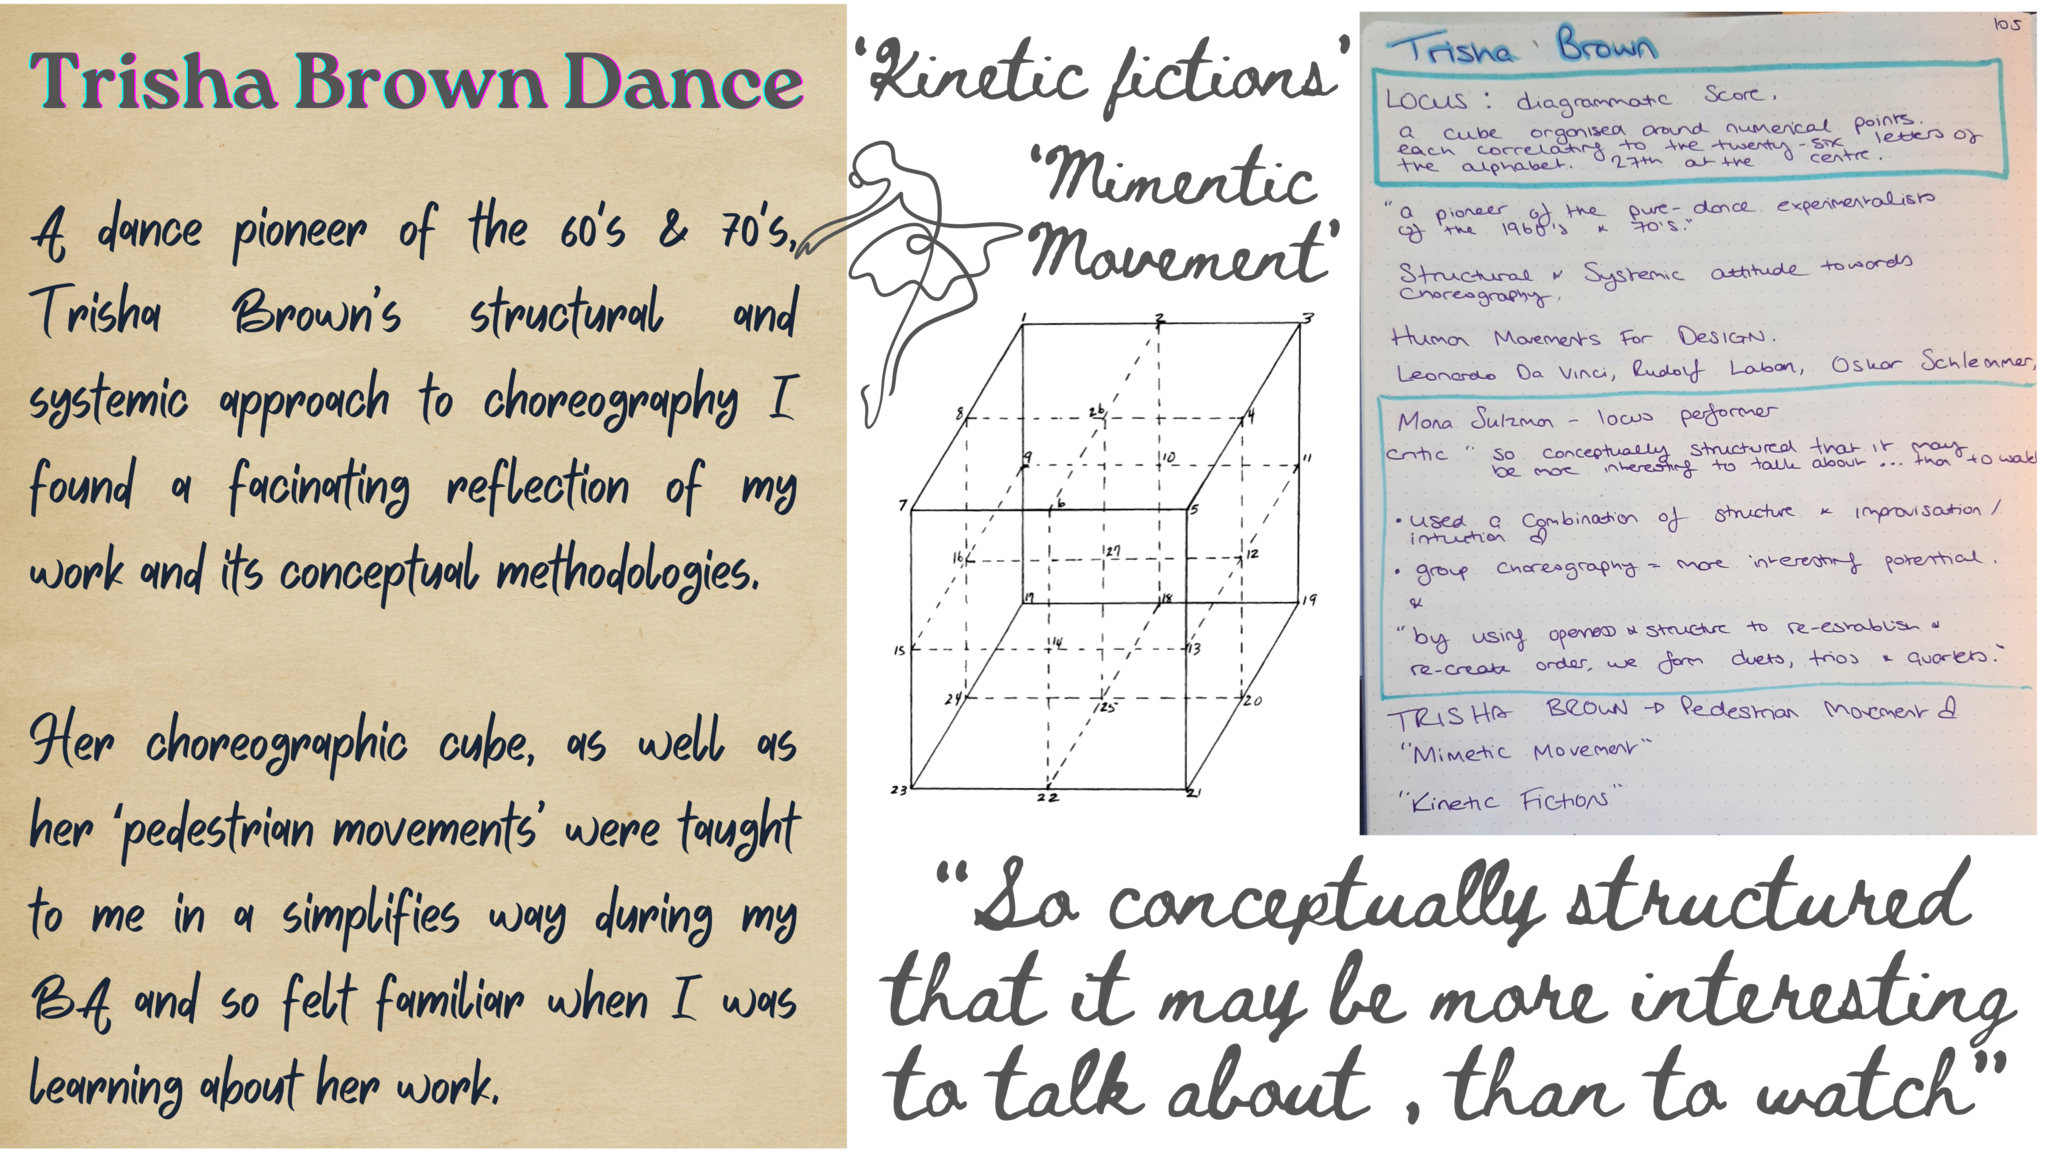 Trisha Brown Dance
A dance pioneer of the 60's & 70's,
Trisha Brown's structural and
systemic approach to choreography I
found a facinating reflection of my
work and its conceptual methodologies.
Her choreographic cube, as well as
her 'pedestrian movements' were taught
to me in a simplifies way during my
BA and so felt familiar when I was
learning about her work.
'Kinetic fictions'
'Mimentic
Movement'
1 2 3
8 26 4
9 10 11
7 6 5
16 27 12
17 18 19
15 14 13
24 25 20
23 22 21
105
Trisha Brown
LOCUS: diagrammatic Score.
a cube organised around numerical points.
each correlating to the twenty-six letters of
the alphabet. 27th at the centre.
"a pioneer of the pure-dance experimentalists
of the 1960's & 70's."
Structural & Systemic attitude towards
Choreography.
Human Movements For DESIGN.
Leonardo Da Vinci, Rudolf Laban, Oskar Schlemmer,
Mona Sulzman - locus performer
critic "so conceptually structured that it may
be more interesting to talk about ... than to watch
• used a combination of structure & improvisation/
intuition
• group choreography = more interesting potential.
&
"by using openness & structure to re-establish &
re-create order, we form duets, trios & quartets."
TRISHA BROWN → Pedestrian Movement &
"Mimetic Movement"
"Kinetic Fictions"
"So conceptually structured
that it may be more interesting
to talk about , than to watch"